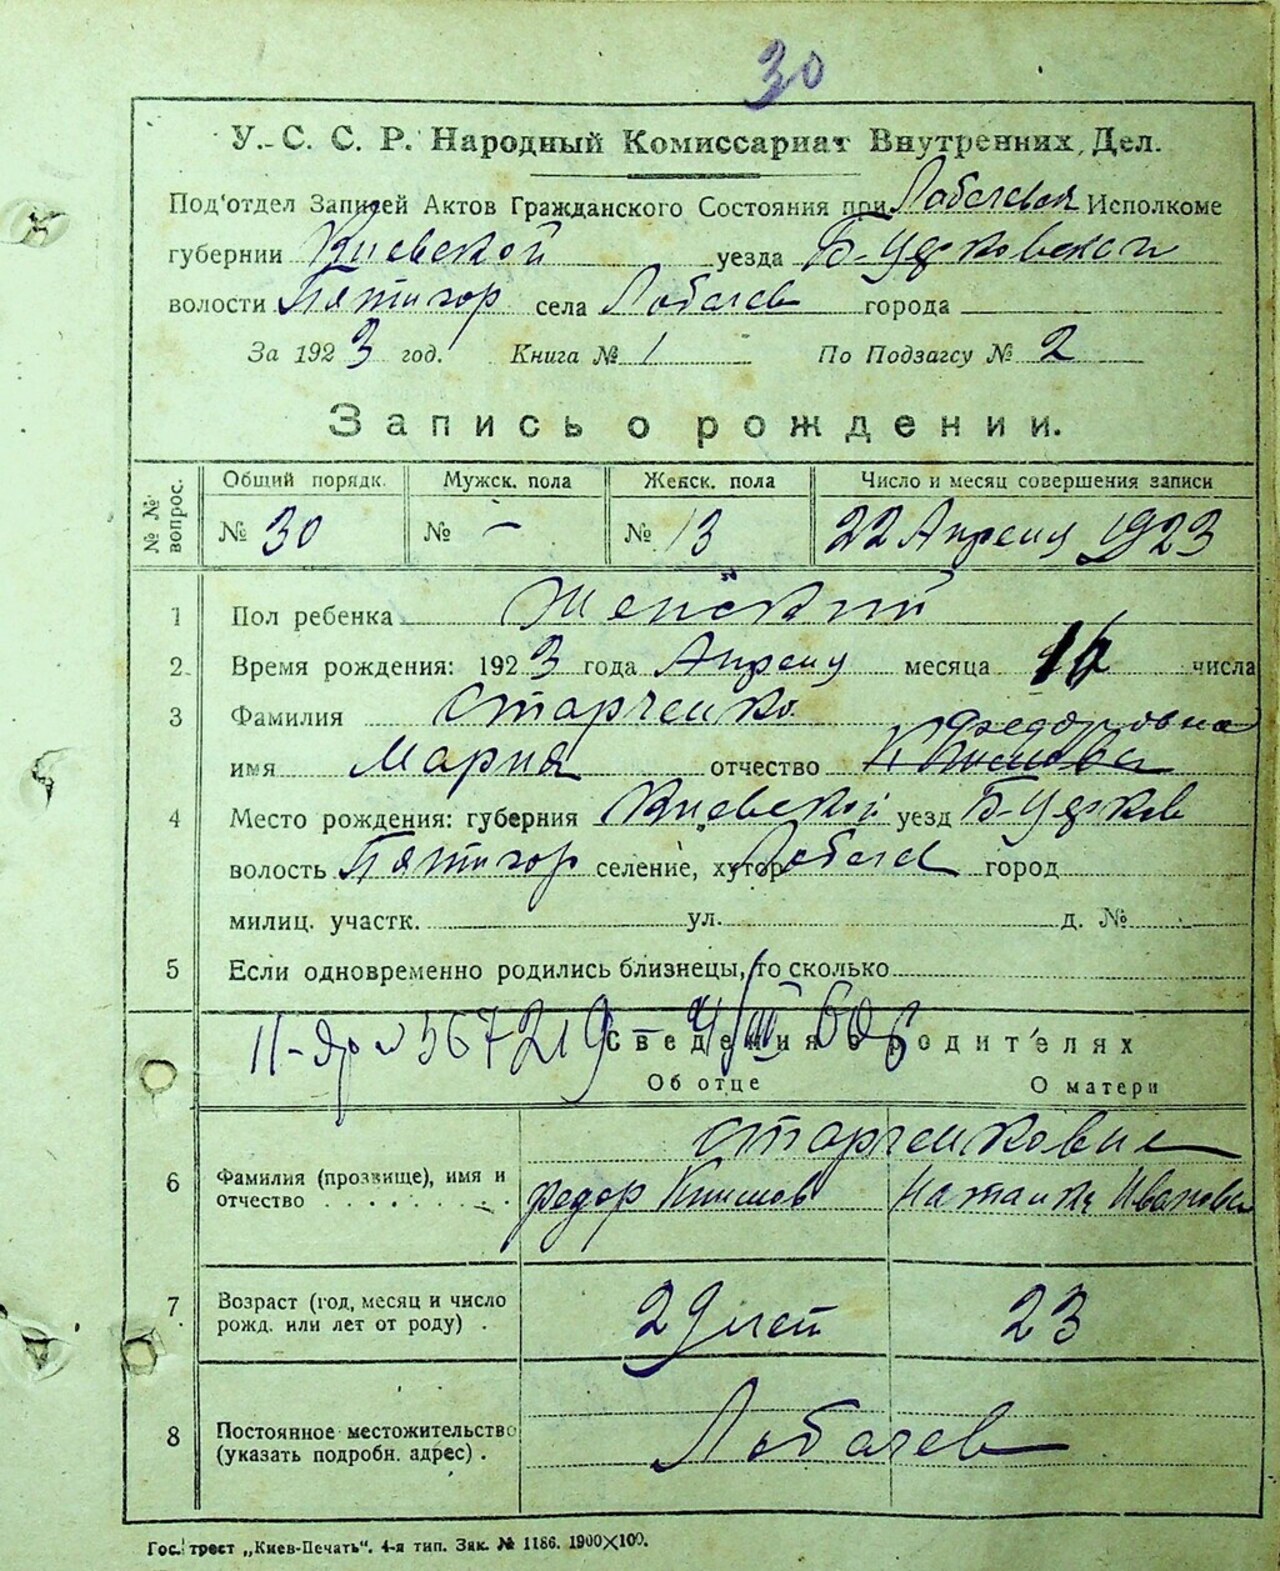 30
У.-С. С. Р. Народный Комиссариат Внутренних Дел.
Под'отдел Записей Актов Гражданского Состояния при Лобачевск Исполкоме
губернии Киевской уезда Б-Церковской
волости Пятигор села Лобачев города
За 1923 год. Книга № 1 По Подзагсу № 2
Запись о рождении.
№ № вопрос. Общий порядк. Мужск. пола Женск. пола Число и месяц совершения записи
№ 30 № - № 13 22 Апреля 1923
1 Пол ребенка Женский
2 Время рождения: 1923 года Апреля месяца 16 числа
3 Фамилия Старченко
Федоровна
имя Мария отчество
4 Место рождения: губерния Киевской уезд Б-Церков
волость Пятигор селение, хутор Лобачев город
милиц. участк. ул. д. №
5 Если одновременно родились близнецы, то сколько
Сведения о родителях
11-яр № 567219 - 4/III 60г
Об отце О матери
Старченкови
6 Фамилия (прозвище), имя и отчество Федор Климов Наталия Иванов
7 Возраст (год, месяц и число рожд. или лет от роду) . 29 лет 23
8 Постоянное местожительство (указать подробн. адрес) . Лобачев
Гос. трест „Киев-Печать". 4-я тип. Зак. № 1186. 1900×100.